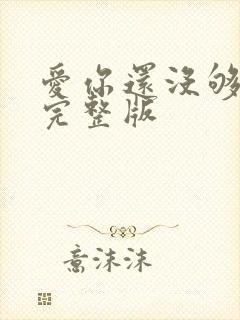 愛你還沒够
完整版
意沫沫